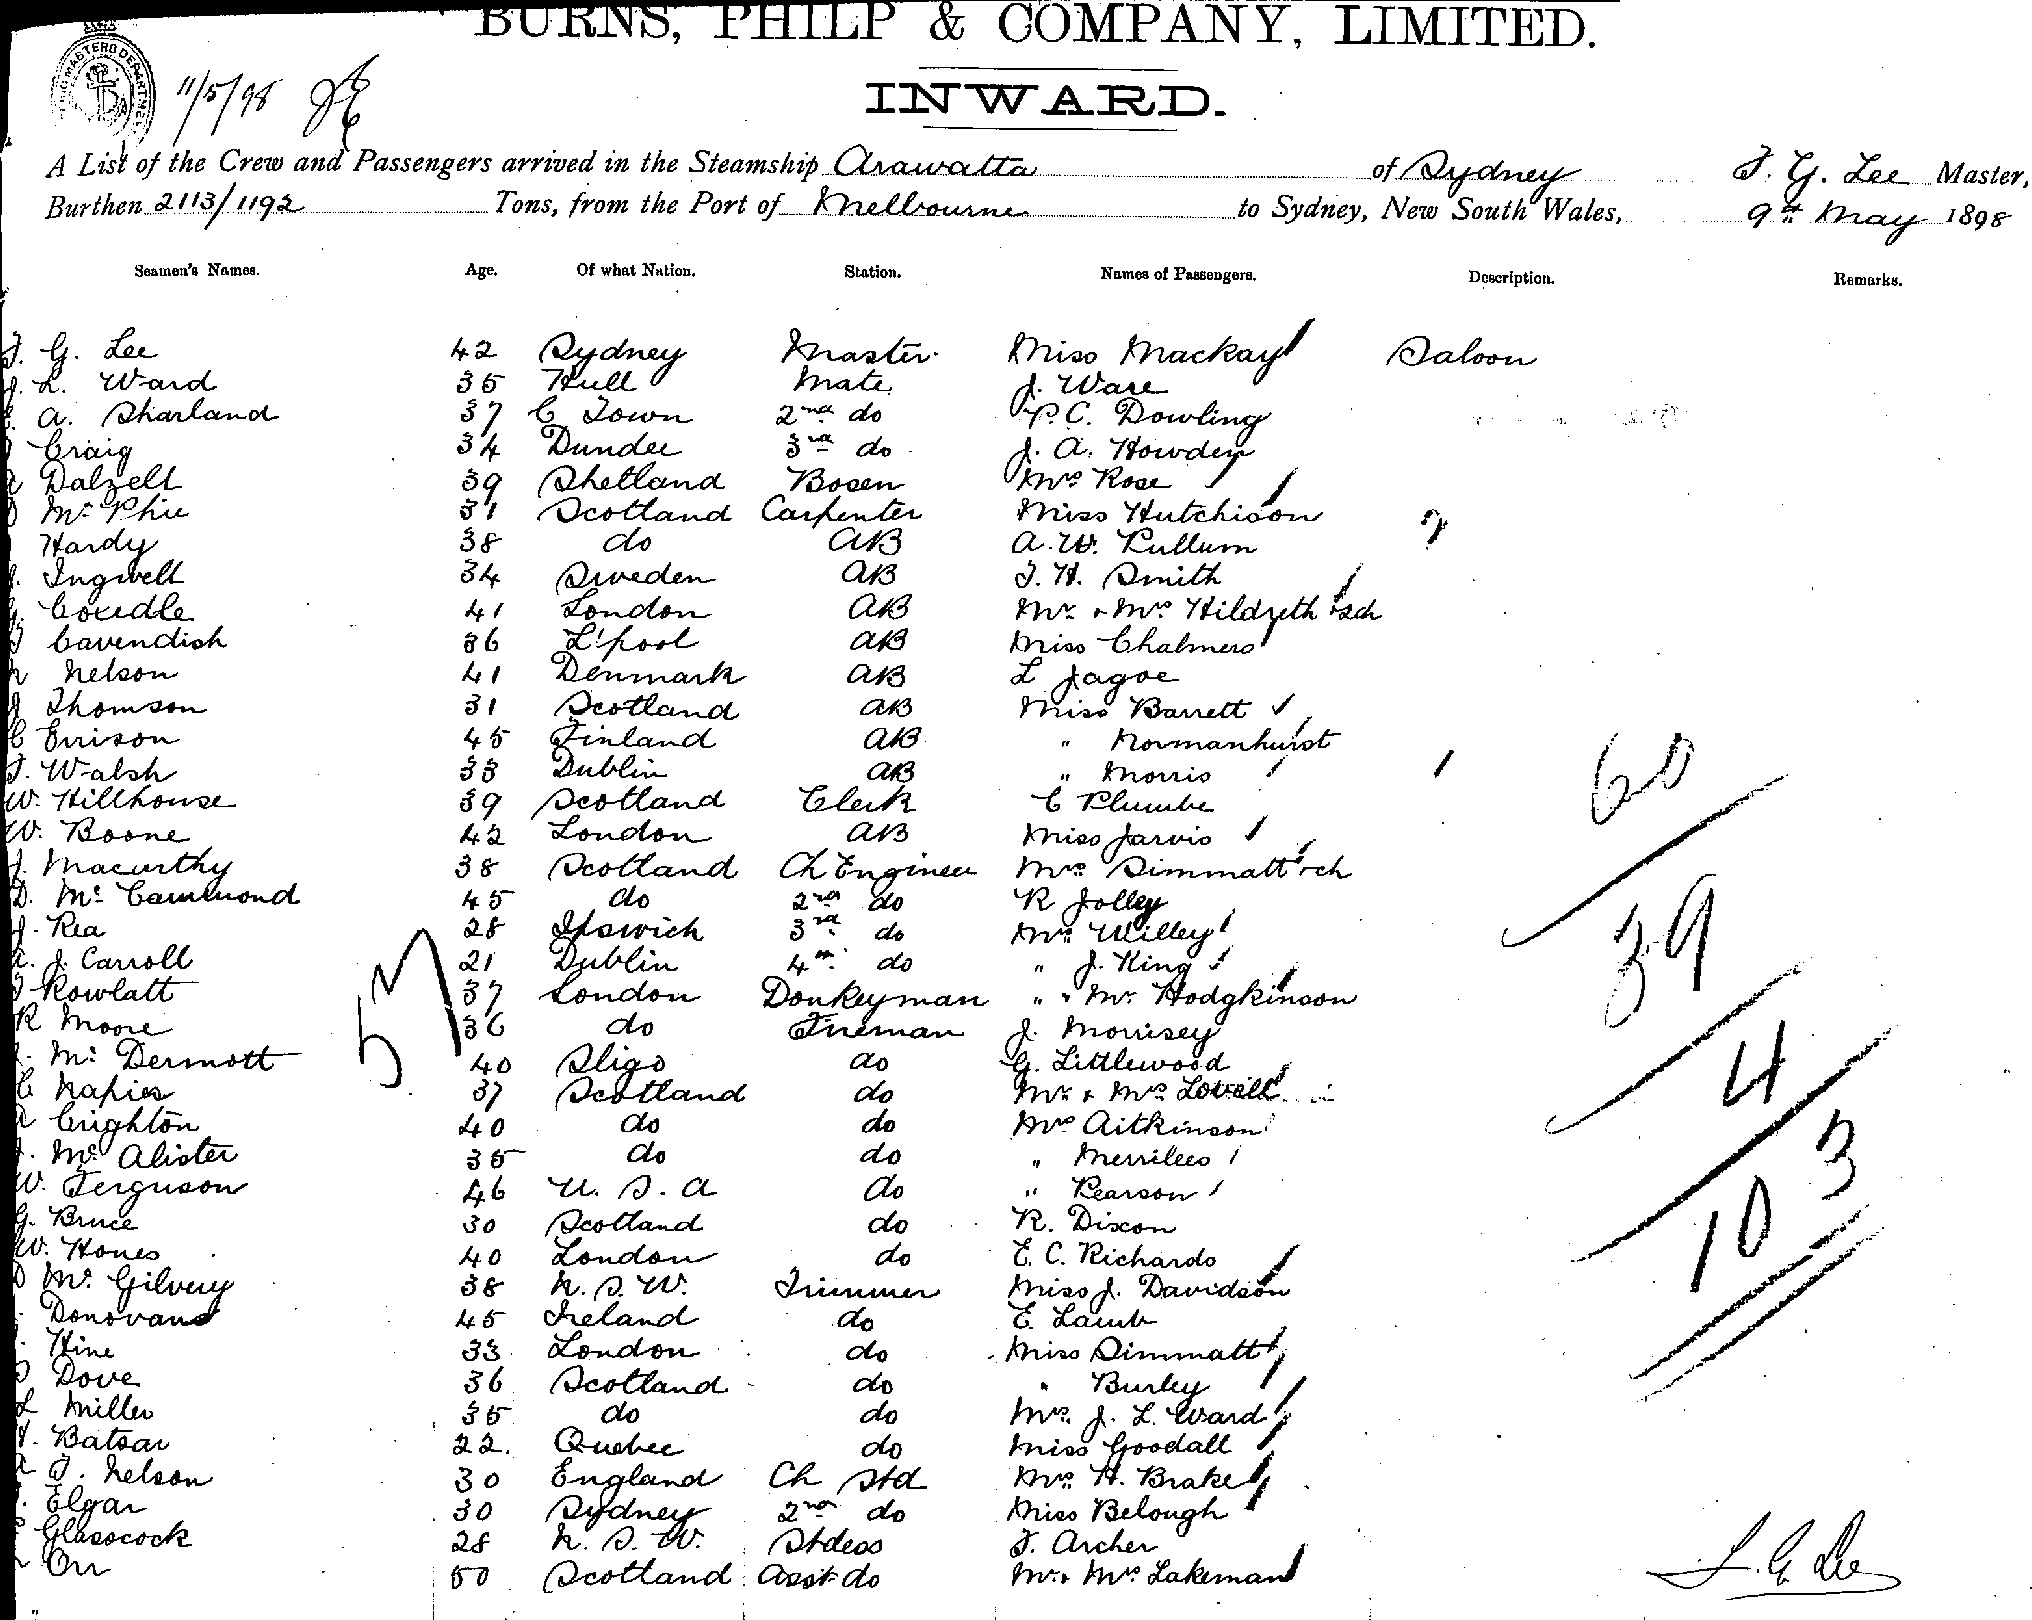 BURNS, PHILP & COMPANY, LIMITED.
11/5/98
INWARD.
A List of the Crew and Passengers arrived in the Steamship Arawatta of Sydney T. G. Lee Master,
Burthen 2113/1192 Tons, from the Port of Melbourne to Sydney, New South Wales, 9th May 1898
Seamen's Names. Age. Of what Nation. Station. Names of Passengers. Description. Remarks.
T. G. Lee 42 Sydney Master Miss Mackay Saloon
J. L. Ward 35 Hull Mate J. Ware
A. Sharland 37 C Town 2nd do P. C. Dowling
Craig 34 Dundee 3rd do J. A. Howden
Dalzell 39 Shetland Bosen Mrs Rose
McPhie 31 Scotland Carpenter Miss Hutchison
Hardy 38 do AB A. W. Pullum
Ingwell 34 Sweden AB T. H. Smith
Coxedle 41 London AB Mr & Mrs Hildreth & sch
Cavendish 36 L'pool AB Miss Chalmers
Nelson 41 Denmark AB L Jagoe
Thomson 31 Scotland AB Miss Barrett
C Erison 45 Finland AB " Normanhurst
T. Walsh 33 Dublin AB " Morris
W. Hillhouse 39 Scotland Clerk C Plumbe
W. Boone 42 London AB Miss Jarvis
J. Macurthy 38 Scotland Ch Engineer Mrs Simmatt & ch
D. Mc Cammond 45 do 2nd do R Jolley
J. Rea 28 Ipswich 3rd do Mrs Willey
A. J. Carroll 21 Dublin 4th do " J. King
Rowlatt 37 London Donkeyman " " Mr Hodgkinson
R Moore 36 do Fireman J. Morrisey
Mc Dermott 40 Sligo do G. Littlewood
C Napier 37 Scotland do Mr & Mrs Lovell
Crighton 40 do do Mrs Aitkinson
Mc Alister 35 do do " Merrilees
W. Ferguson 46 U. S. A do " Pearson
G. Bruce 30 Scotland do R. Dixon
W. Hones 40 London do E. C. Richards
McGilvery 38 N. S. W. Trimmer Miss J. Davidson
Donovan 45 Ireland do E. Lamb
Hine 33 London do Miss Simmatt
Dove 36 Scotland do " Burley
L Miller 35 do do Mrs J. L. Ward
Batsar 22. Quebec do Miss Goodall
T. Nelson 30 England Ch Std Mrs H. Brake
Elgar 30 Sydney 2nd do Miss Belough
Glasscock 28 N. S. W. Stdess T. Archer
Orr 50 Scotland Asst do Mr & Mrs Lakeman
57
60
39
4
103
T. G. Lee